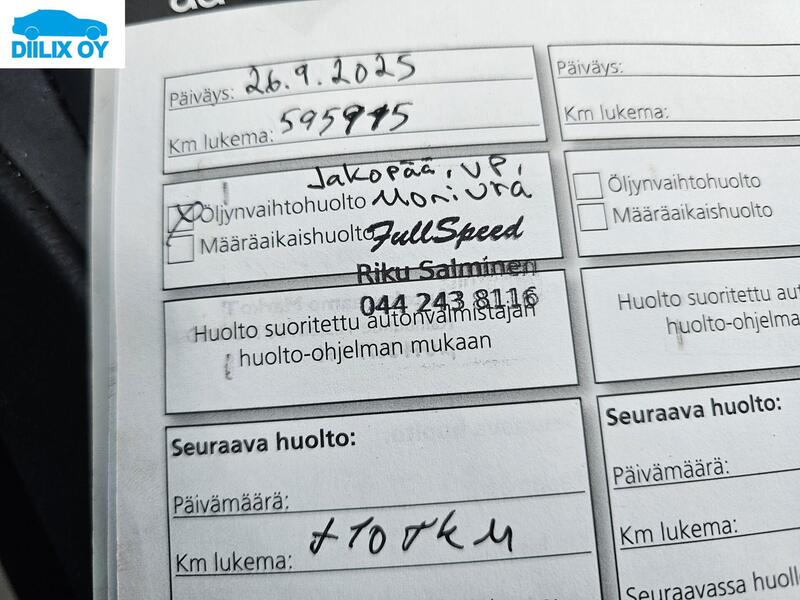 DIILIX OY
Päiväys: 26.9.2025
Km lukema: 595975
Jakopää, VP,
Öljynvaihtohuolto Moniura
Määräaikaishuolto FullSpeed
Riku Salminen
044 243 8116
Huolto suoritettu autonvalmistajan
huolto-ohjelman mukaan
Seuraava huolto:
Päivämäärä:
Km lukema: +10 TKM
Päiväys:
Km lukema:
Öljynvaihtohuolto
Määräaikaishuolto
Huolto suoritettu
huolto-ohjelma
Seuraava huolto:
Päivämäärä:
Km lukema:
Seuraavassa